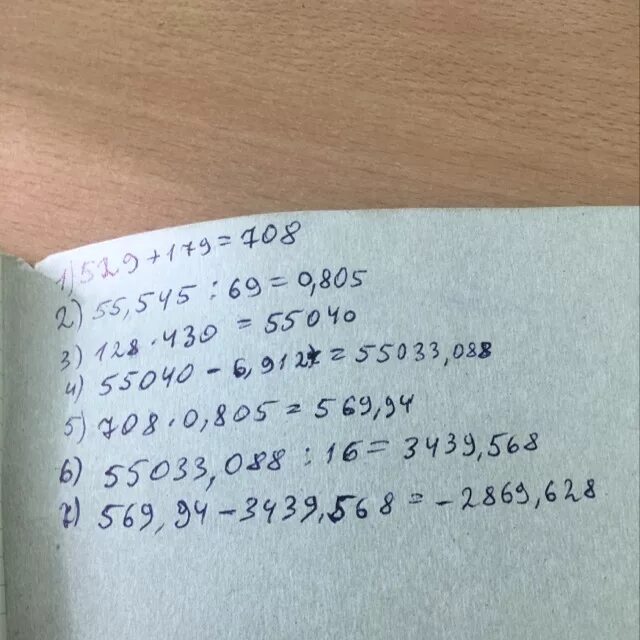 1) 529+179=708
2) 55,545 : 69 = 0,805
3) 128 · 430 = 55040
4) 55040 - 6,912 = 55033,088
5) 708 · 0,805 = 569,94
6) 55033,088 : 16 = 3439,568
7) 569,94 - 3439,568 = -2869,628